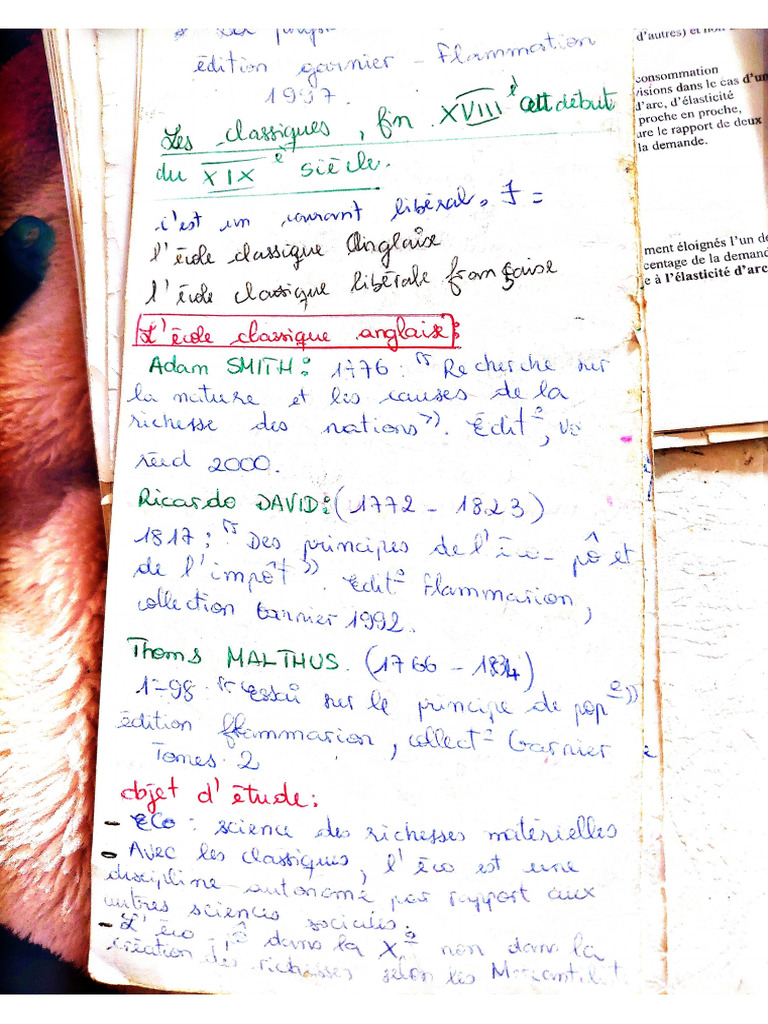 édition garnier - Flammation
1997.
Les classiques, fin XVIIIè et début
du XIXè siècle.
c'est un courant libéral.
l'école classique Anglaise
l'école classique libérale française
L'école classique anglaise:
Adam SMITH: 1776: "Recherche sur
la nature et les causes de la
richesse des nations". Edit°,
rééd 2000.
Ricardo DAVID: (1772 - 1823)
1817; "Des principes de l'éco- pô et
de l'impôt". Edit° Flammarion,
collection Garnier 1992.
Thoms MALTHUS. (1766 - 1834)
"essai sur le principe de pop°"
édition flammarion, collect° Garnier
Tomes. 2
objet d'étude:
- ECO: science des richesses matérielles
- Avec les classiques, l'éco est une
discipline autonome par rapport aux
autres sciences sociales.
- L'éco dans la X° non dans la
création des richesses selon les
d'autres) et
consommation
visions dans le cas d'un
d'arc, d'élasticité
proche en proche,
ure le rapport de deux
la demande.
ment éloignés l'un de
centage de la demand
e à l'élasticité d'arc